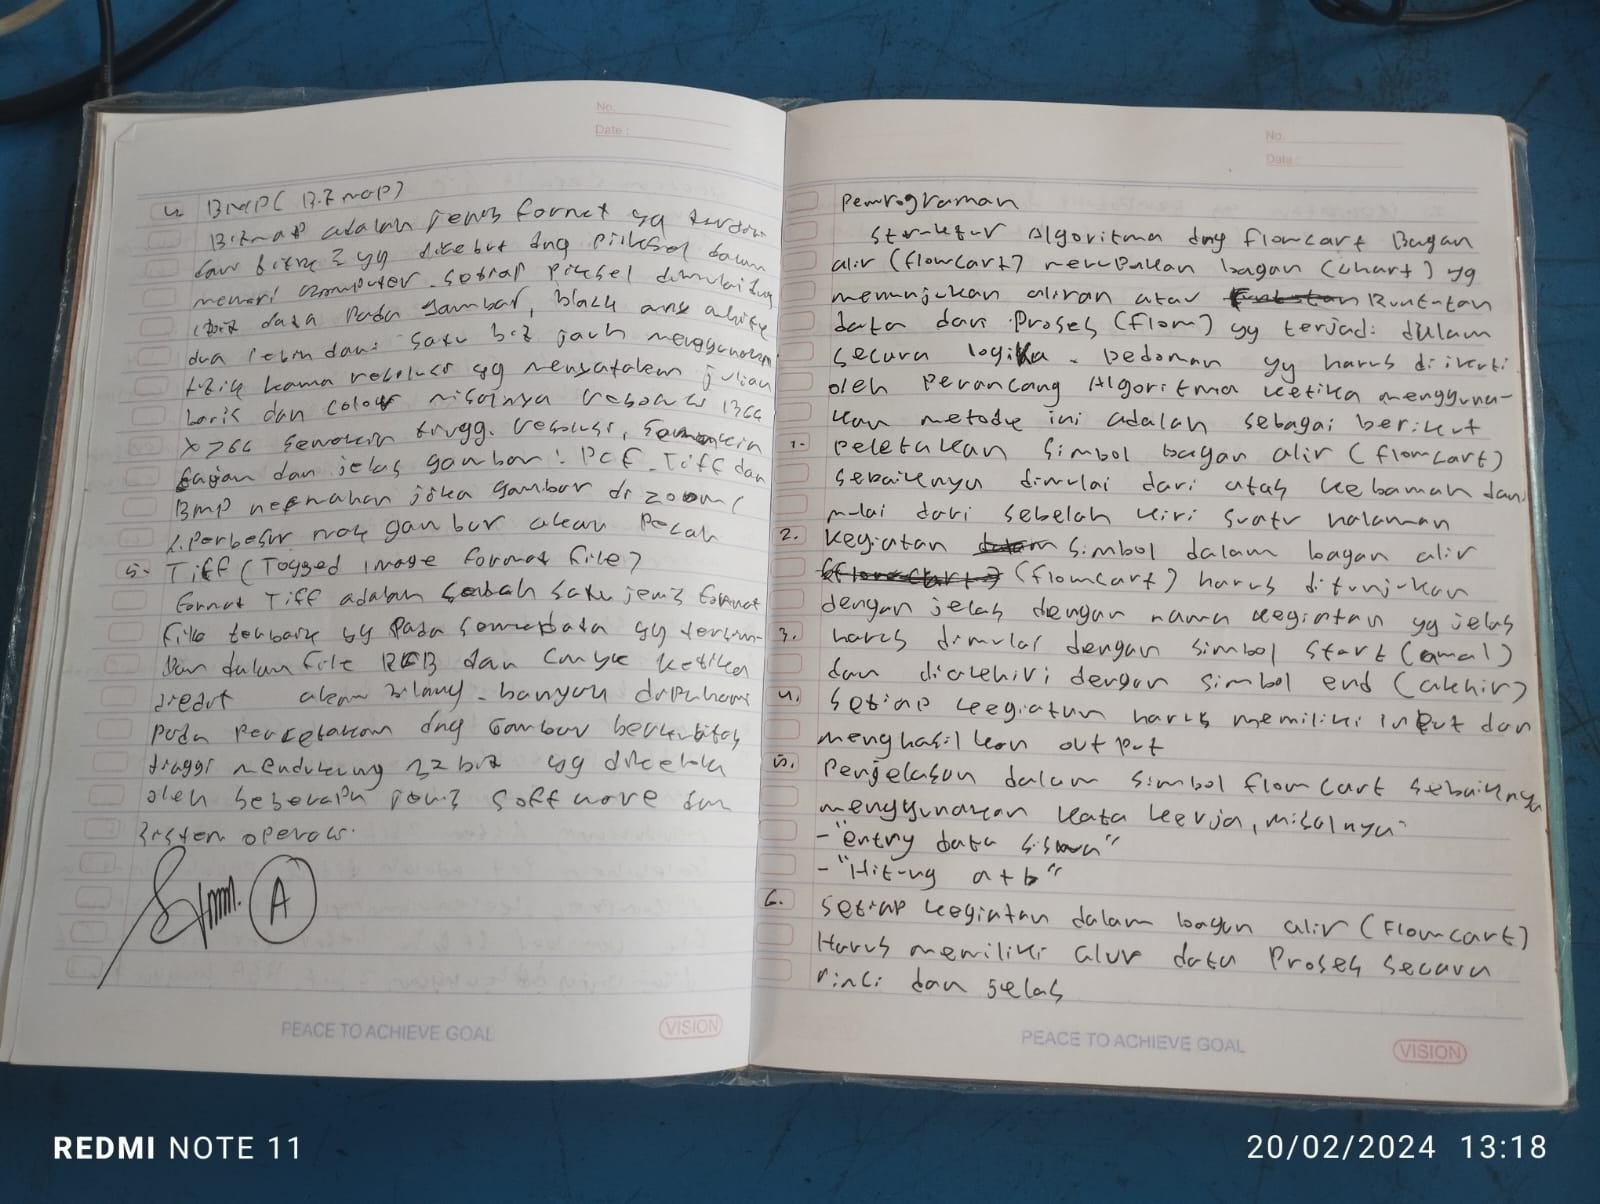 No.
Date :
4. BMP( Bitmap)
Bitmap adalah jenis format yg
dari bitre 2 yg disebut dng piksel dalam
memori computer. setiap piksel dimulai dng
data pada gambar, black and white
dua lebih dari satu bit jauh menggunakan
yg menyatakan
baris dan colour misalnya resolusi 1366
x 766 semakin tinggi resolusi, semakin
dan jelas gambar. PCF. Tiff dan
Bmp jika gambar di zoom (
gambar akan Pecah
5. Tiff (Tagged image format file)
format Tiff adalah salah satu jenis format
file terbaik yg pada data yg tersim-
pan dalam file RGB dan Cmyk ketika
akan hilang. banyak
pada percetakan dng Gambar
tinggi mendukung 32 bit yg dikelola
oleh beberapa jenis software dan
sistem operasi.
A
PEACE TO ACHIEVE GOAL
VISION
No.
Date :
Pemrograman
Struktur Algoritma dng flowcart Bagan
alir (flowcart) merupakan bagan (chart) yg
menunjukan aliran atau Runtutan
data dari Proses (flow) yg terjadi dalam
secara logika. pedoman yg harus diikuti
oleh Perancang Algoritma ketika mengguna-
kan metode ini adalah sebagai berikut
1. Peletakan Simbol bagan alir (flowcart)
sebaiknya dimulai dari atas kebawah dan
mulai dari sebelah kiri suatu halaman
2. Kegiatan simbol dalam bagan alir
(flowcart) harus ditunjukan
dengan jelas dengan nama kegiatan yg jelas
3. harus dimulai dengan simbol start (awal)
dan diakhiri dengan simbol end (akhir)
4. Setiap kegiatan harus memiliki input dan
menghasilkan out put
5. Penjelasan dalam simbol flowcart sebaiknya
menggunakan kata kerja, misalnya
- "entry data siswa"
- "Hitung a + b"
6. Setiap kegiatan dalam bagan alir (Flowcart)
Harus memiliki alur data Proses secara
rinci dan jelas
PEACE TO ACHIEVE GOAL
VISION
REDMI NOTE 11
20/02/2024 13:18